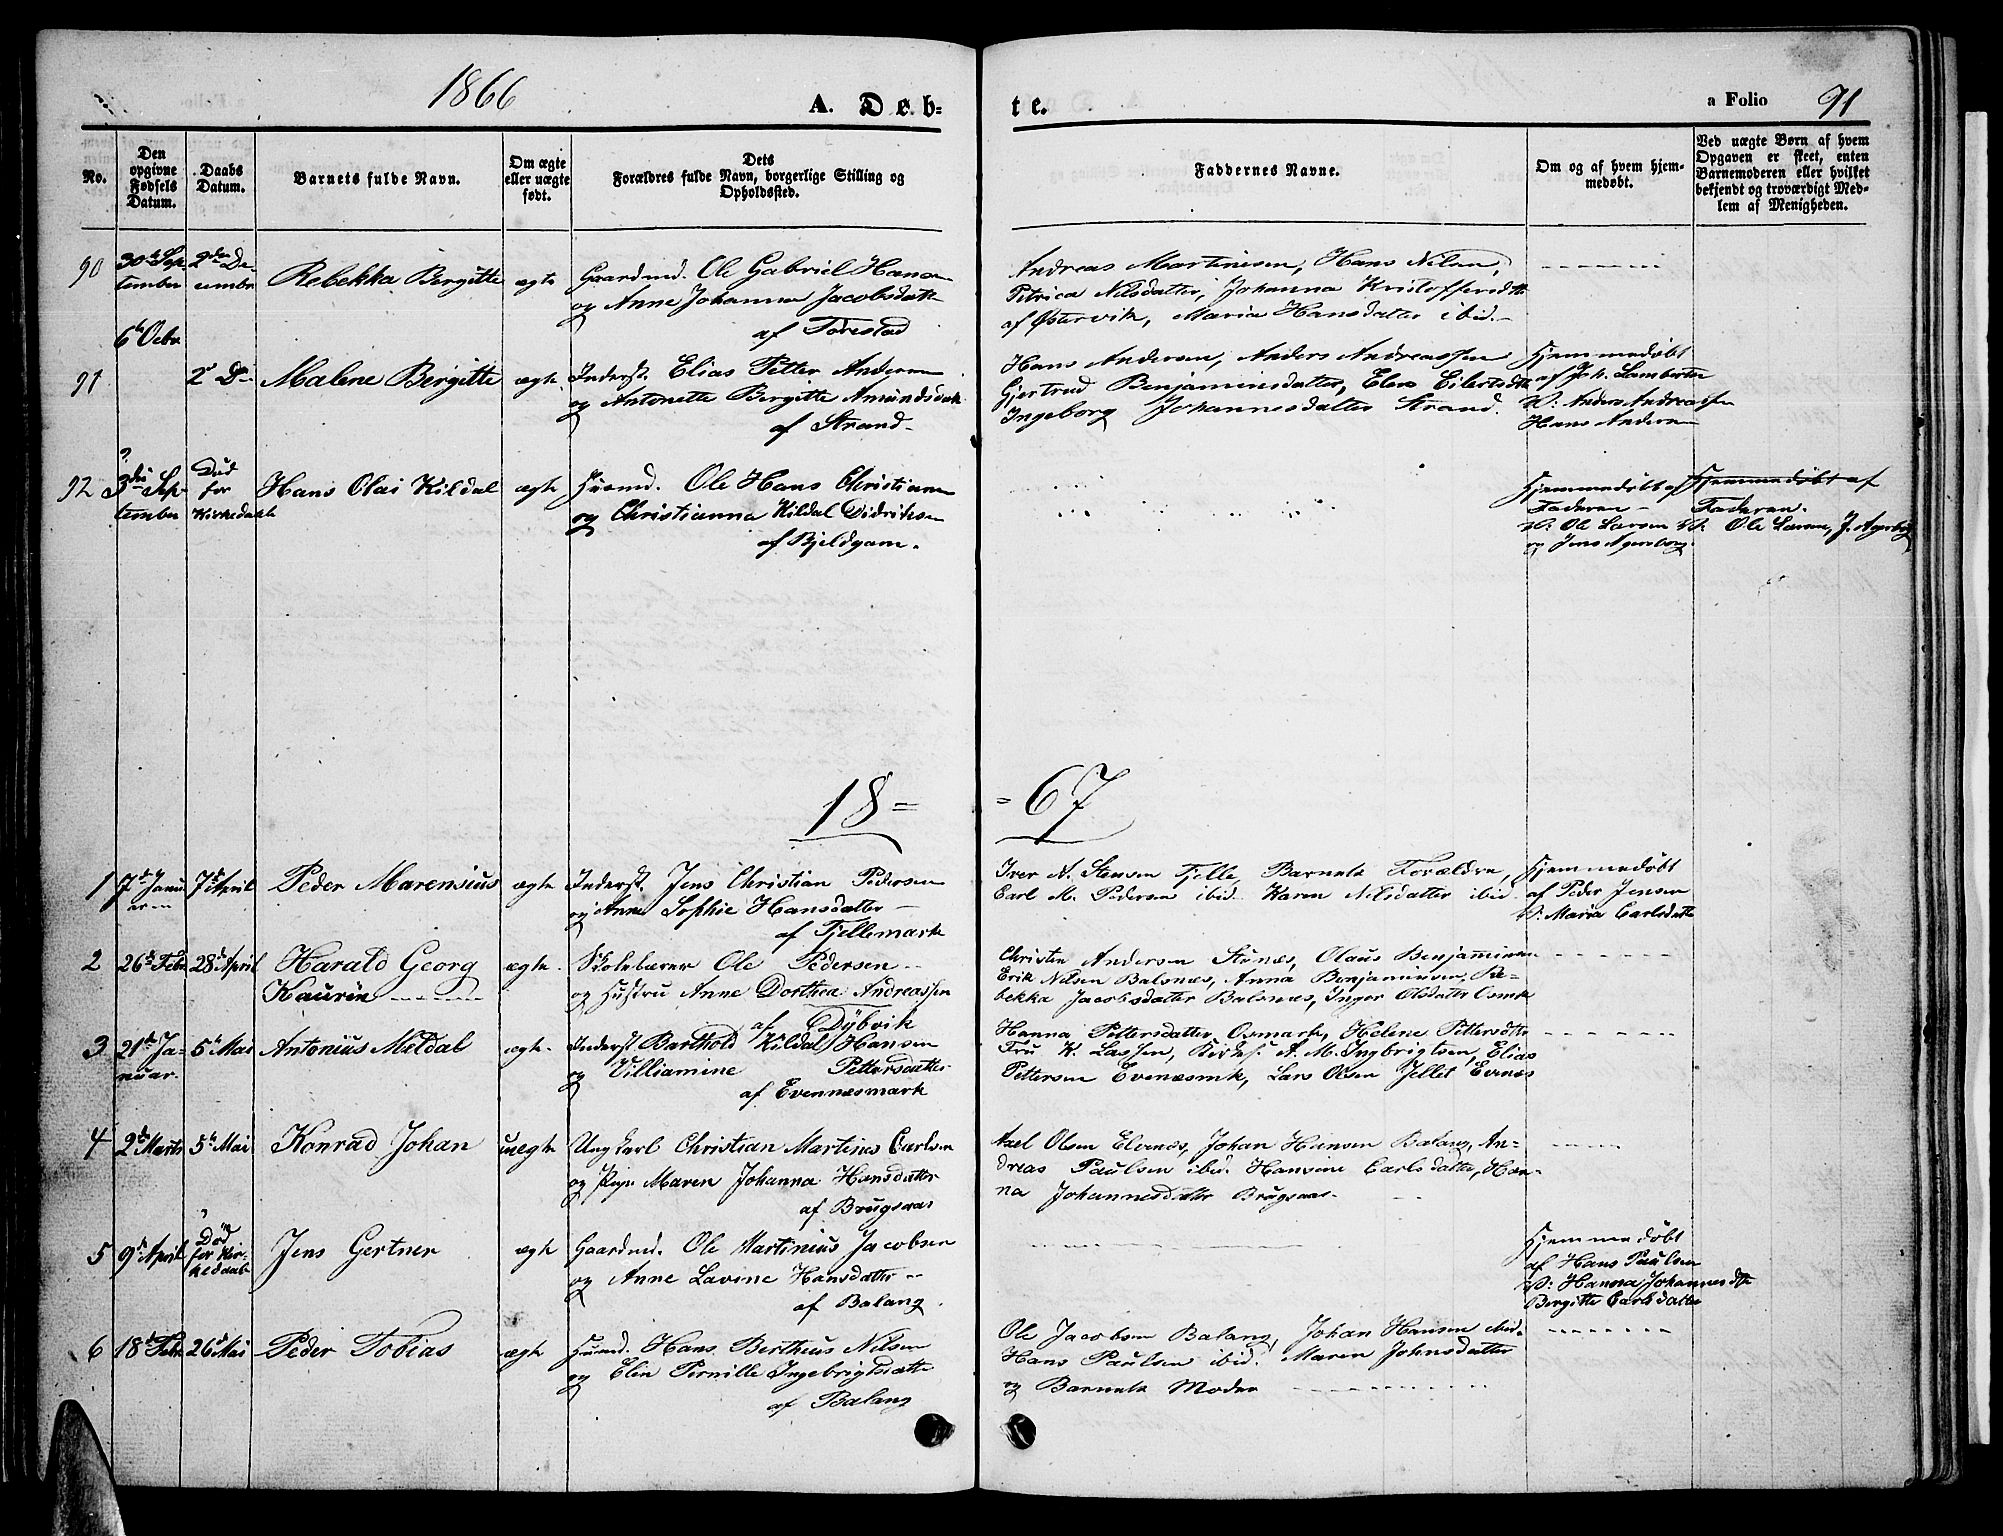 1866
A. Døb-
te.
a Folio 91
No.
Den opgivne Fødsels Datum.
Daabs Datum.
Barnets fulde Navn.
Om ægte eller uægte født.
Dets Forældres fulde Navn, borgerlige Stilling og Opholdssted.
Faddernes Navne.
Om og af hvem hjemmedøbt.
Ved uægte Børn af hvem Opgaven er skeet, enten Barnemoderen eller hvilket bekjendt og troværdigt Medlem af Menigheden.
90
30te Sep-
tember
2den De-
cember
Rebekka Bergitte
ægte
Gaardmd. Ole Gabriel Hansen
og Anne Johanna Jacobsdatt
af Forestad
Andreas Martinesen, Hans Nilsen,
Petrica Nilsdatter, Johanna Kristoffersdtt
af Østervik, Maria Hansdatter ibid.
91
6te Octbr
2den D-
Malene Bergitte
ægte
Inderst. Elias Petter Andersen
og Antonette Bergitte Amundsdatt
af Strand
Hans Andersen, Anders Andreassen
Gjertrud Benjaminsdatter, Elen Eilertsdtt
Ingeborg Johannesdatter Strand.
Hjemmedøbt
af Joh. Lambertsen
V: Anders Andreassen
Hans Andersen
92
?
3die Sep-
tember
Død
før
Kirkedaab
Hans Olai Kildal
ægte
Husmd. Ole Hans Christiansen
og Christianna Kildal Didriksen
af Bjeldgam.
Hjemmedøbt af
Faderen
V: Ole Larsen
og Jens Agersborg
Hjemmedøbt af
Faderen.
V. Ole Larsen, J. Agersborg
18= =67
1
7de Janu-
ar
7de April
Peder Marensius
ægte
Inderst. Jens Christian Pedersen
og Anne Sophie Hansdatter
af Fjellemark
Iver A. Stensen Fjelle, Barnets Forældre,
Carl M. Pedersen ibid. Karen Nilsdatter ibid
Hjemmedøbt
af Peder Jensen
V: Maria Carlsdatt
2
26de Febr
28de April
Harald Georg
Kaurin
ægte.
Skolelærer Ole Pedersen
og Hustru Anne Dorthea Andreassen
af Dybvik
Christen Andersen Stunes, Olaus Benjaminsen
Erik Nilsen Balsnæs, Anna Benjaminsen, Re-
bekka Jacobsdatter Balsnæs, Inger Olsdatter Osmk
3
21de Ja-
nuar.
5te Mai
Antonius Mildal
ægte.
Inderst Barthold Kildal Hansen
og Villiamine Pettersdatter
af Evennesmark
Hanna Pettersdatter Osmark, Helene Pettersdtt
Fru K. Lassen, Kirks. A. M. Ingbrigtsen, Elias
Pettersen Evenæsmk, Lars Olsen Jellet Evenes
4
2de Marts
5te Mai
Konrad Johan
uægte
Ungkarl Christian Martines Carlsen
og Pige Maren Johanna Hansdatter
af Brugsaas
Axel Olsen Elvenæs, Johan Hansen Balang, An-
dreas Paulsen ibid. Hansine Carlsdatter, Han-
na Johannesdatter Brugsaas.
5
9de April
Død
før Kir-
kedaab
Jens Gertner
ægte
Gaardmd. Ole Martinius Jacobsen
og Anne Lavine Hansdatter
af Balang.
Hjemmedøbt
af Hans Paulsen
V: Hanna Johannesdtt
Bergitte Carlsdatter
6
18de Febr.
26de Mai
Peder Tobias
ægte
Husmd. Hans Bertheus Nilsen
og Elen Pernille Ingebrigtsdatter
af Balang
Ole Jacobsen Balang, Johan Hansen ibid.
Hans Paulsen ibid. Maren Johnsdatter
og Barnets Moder